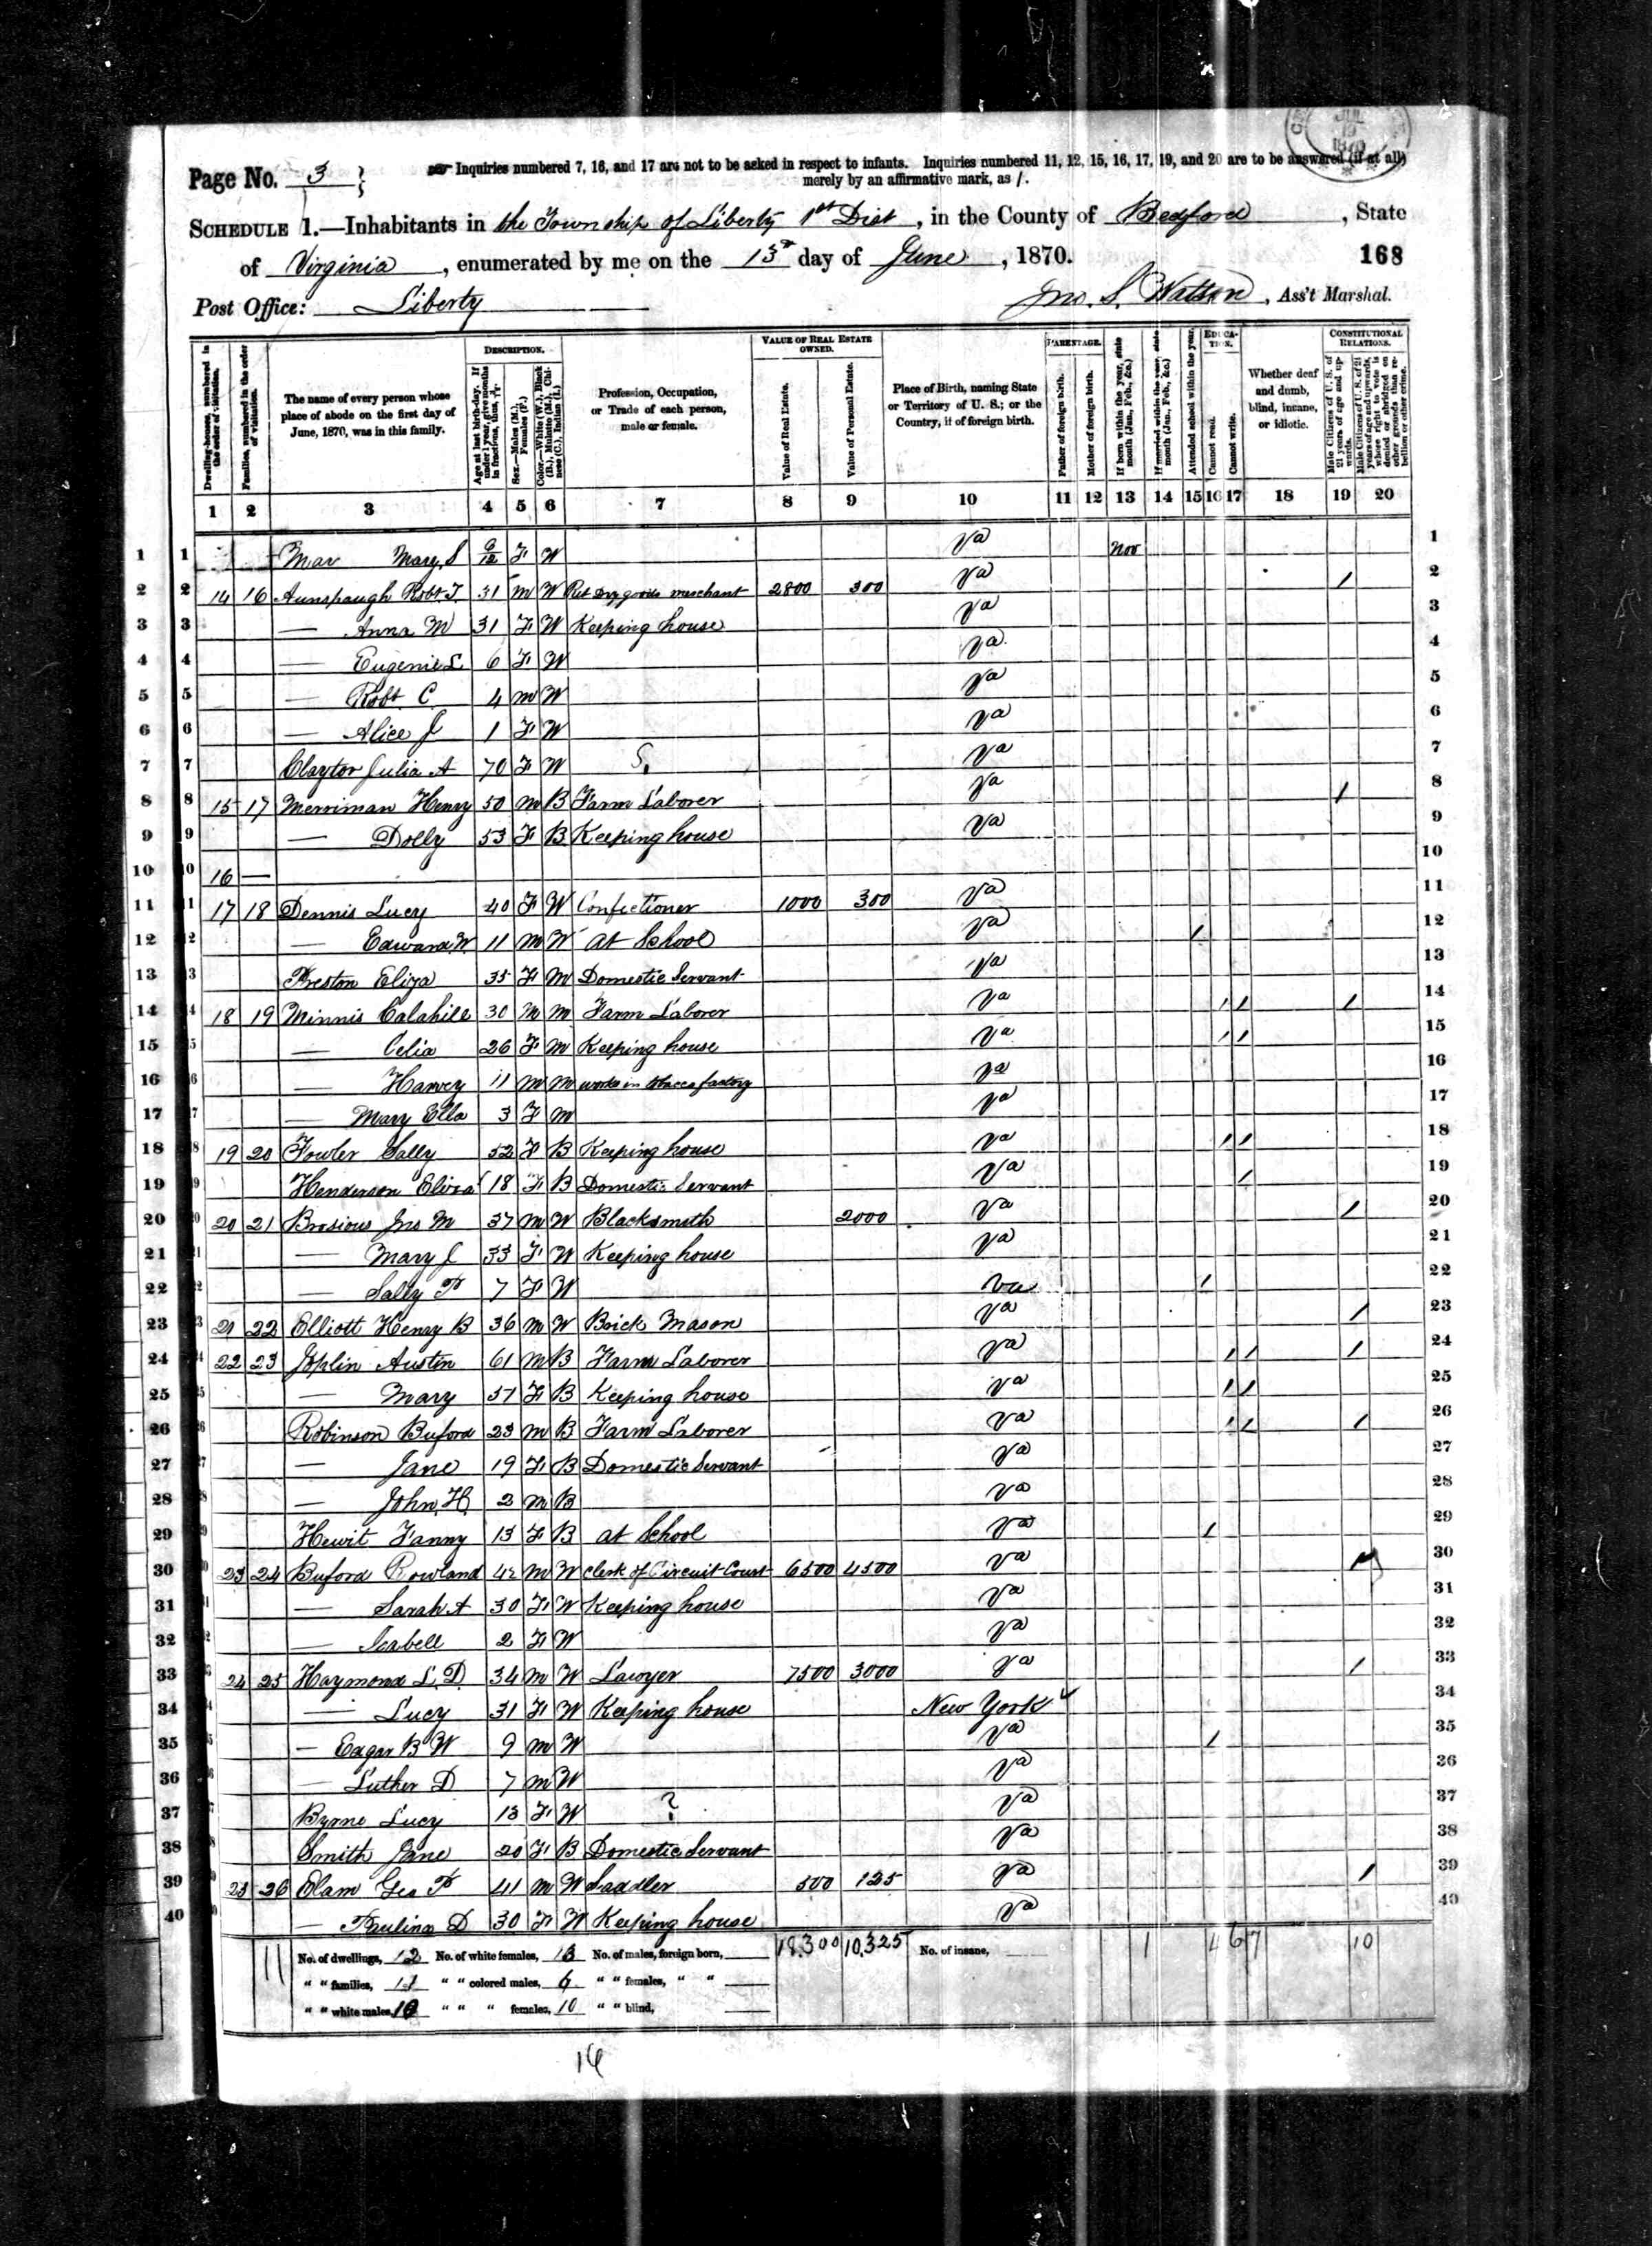 Page No. 3 } Inquiries numbered 7, 16, and 17 are not to be asked in respect to infants. Inquiries numbered 11, 12, 15, 16, 17, 19, and 20 are to be answered (if at all)
merely by an affirmative mark, as /.
SCHEDULE 1.—Inhabitants in the Township of Liberty 1st Dist, in the County of Bedford, State
of Virginia, enumerated by me on the 13th day of June, 1870. 168
Post Office: Liberty Jno. S. Watson, Ass't Marshal.
Dwelling-houses, numbered in the order of visitation.
Families, numbered in the order of visitation.
The name of every person whose place of abode on the first day of June, 1870, was in this family.
DESCRIPTION.
Age at last birth-day. If under 1 year, give months in fractions, thus, 3/12.
Sex.—Males (M.), Females (F.)
Color.—White (W.), Black (B.), Mulatto (M.), Chinese (C.), Indian (I.)
Profession, Occupation, or Trade of each person, male or female.
VALUE OF REAL ESTATE OWNED.
Value of Real Estate.
Value of Personal Estate.
Place of Birth, naming State or Territory of U. S.; or the Country, if of foreign birth.
PARENTAGE.
Father of foreign birth.
Mother of foreign birth.
If born within the year, state month (Jan., Feb., &c.)
If married within the year, state month (Jan., Feb., &c.)
Attended school within the year.
EDUCATION.
Cannot read.
Cannot write.
Whether deaf and dumb, blind, insane, or idiotic.
CONSTITUTIONAL RELATIONS.
Male Citizens of U. S. of 21 years of age and upwards.
Male Citizens of U. S. of 21 years of age and upwards, whose right to vote is denied or abridged on other grounds than rebellion or other crime.
1 2 3 4 5 6 7 8 9 10 11 12 13 14 15 16 17 18 19 20
1 1 Mary S 6/12 F W Va Nov 1
2 2 14 16 Aunspaugh Robt. T. 31 M W Ret Dry goods merchant 2800 300 Va / 2
3 3 — Anna M 31 F W Keeping house Va 3
4 4 — Eugenie L 6 F W Va 4
5 5 — Robt. C. 4 M W Va 5
6 6 — Alice J 1 F W Va 6
7 7 Claytor Julia A 70 F W Va 7
8 8 15 17 Merriman Henry 50 M B Farm Laborer Va / 8
9 9 — Dolly 53 F B Keeping house Va 9
10 10 16 — 10
11 11 17 18 Dennis Lucy 40 F W Confectioner 1000 300 Va 11
12 12 — Edward W. 11 M W at School Va / 12
13 13 Preston Eliza 35 F M Domestic Servant Va 13
14 14 18 19 Minnis Calahill 30 M M Farm Laborer Va / / / 14
15 15 — Celia 26 F M Keeping house Va / / 15
16 16 — Harvey 11 M M works in tobacco factory Va 16
17 17 — Mary Ella 3 F M Va 17
18 18 19 20 Fowler Sally 52 F B Keeping house Va / / 18
19 19 Henderson Eliza 18 F B Domestic Servant Va / 19
20 20 20 21 Brosious Jno M 37 M W Blacksmith 2000 Va / 20
21 21 — Mary J 33 F W Keeping house Va 21
22 22 — Sally P 7 F W Va / 22
23 23 21 22 Elliott Henry B 36 M W Brick Mason Va / 23
24 24 22 23 Joplin Austin 61 M B Farm Laborer Va / / / 24
25 25 — Mary 57 F B Keeping house Va / / 25
26 26 Robinson Buford 23 M B Farm Laborer Va / / / 26
27 27 — Jane 19 F B Domestic Servant Va 27
28 28 — John H. 2 M B Va 28
29 29 Hewit Fanny 13 F B at School Va / 29
30 30 23 24 Buford Rowland 42 M W Clerk of Circuit Court 6500 4500 Va / 30
31 31 — Sarah A 30 F W Keeping house Va 31
32 32 — Isabell 2 F W Va 32
33 33 24 25 Haymond L. D. 34 M W Lawyer 7500 3000 Va / 33
34 34 — Lucy 31 F W Keeping house New York 34
35 35 — Edgar B W 9 M W Va / 35
36 36 — Luther D 7 M W Va 36
37 37 Byrne Lucy 13 F W ? Va 37
38 38 Smith Jane 20 F B Domestic Servant Va 38
39 39 25 26 Elam Geo P 41 M W Saddler 500 125 Va / 39
40 40 — Paulina D 30 F W Keeping house Va 40
11 No. of dwellings, 12 No. of white females, 13 No. of males, foreign born, 18,300 10,325 No. of insane, 1 4 6 7 10
" " families, 11 " " colored males, 6 " " females, " "
" " white males, 10 " " " females, 10 " " blind,
14